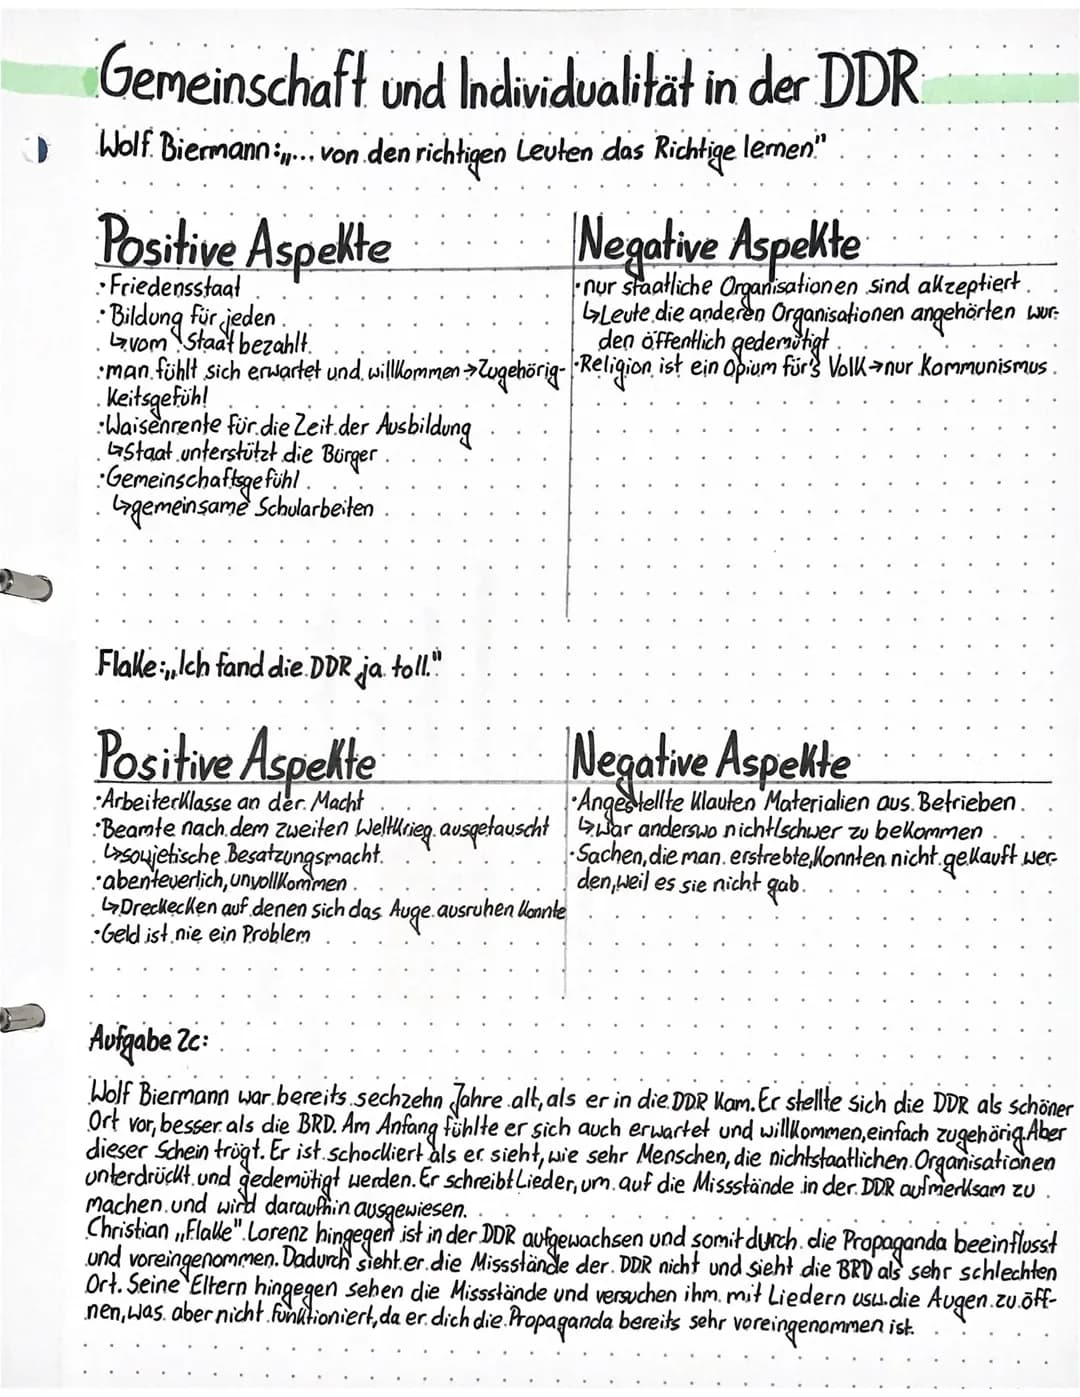 Gemeinschaft und Individualität in der DDR
Wolf Biermann: „... von den richtigen Leuten das Richtige lernen"
Positive Aspekte
• Friedensstaat
• Bildung für jeden
↳ vom Staat bezahlt
• man fühlt sich erwartet und willkommen → Zugehörig-
keitsgefühl
• Waisenrente für die Zeit der Ausbildung
↳ Staat unterstützt die Bürger
• Gemeinschaftsgefühl
↳ gemeinsame Schularbeiten
Negative Aspekte
• nur staatliche Organisationen sind akzeptiert
↳ Leute, die anderen Organisationen angehörten wur-
den öffentlich gedemütigt
• Religion ist ein Opium für's Volk → nur Kommunismus
Flake: „Ich fand die DDR ja toll."
Positive Aspekte
• Arbeiterklasse an der Macht
• Beamte nach dem zweiten Weltkrieg ausgetauscht
↳ sowjetische Besatzungsmacht
• abenteuerlich, unvollkommen
↳ Dreckecken auf denen sich das Auge ausruhen konnte
• Geld ist nie ein Problem
Negative Aspekte
• Angestellte klauten Materialien aus Betrieben
↳ war anderswo nicht/schwer zu bekommen
• Sachen, die man erstrebte, konnten nicht gekauft wer-
den, weil es sie nicht gab
Aufgabe 2c:
Wolf Biermann war bereits sechzehn Jahre alt, als er in die DDR kam. Er stellte sich die DDR als schöner
Ort vor, besser als die BRD. Am Anfang fühlte er sich auch erwartet und willkommen, einfach zugehörig. Aber
dieser Schein trügt. Er ist schockiert als er sieht, wie sehr Menschen, die nichtstaatlichen Organisationen
unterdrückt und gedemütigt werden. Er schreibt Lieder, um auf die Missstände in der DDR aufmerksam zu
machen und wird daraufhin ausgewiesen.
Christian „Flake" Lorenz hingegen ist in der DDR aufgewachsen und somit durch die Propaganda beeinflusst
und voreingenommen. Dadurch sieht er die Missstände der DDR nicht und sieht die BRD als sehr schlechten
Ort. Seine Eltern hingegen sehen die Missstände und versuchen ihm mit Liedern usw. die Augen zu öff-
nen, was aber nicht funktioniert, da er dich die Propaganda bereits sehr voreingenommen ist.